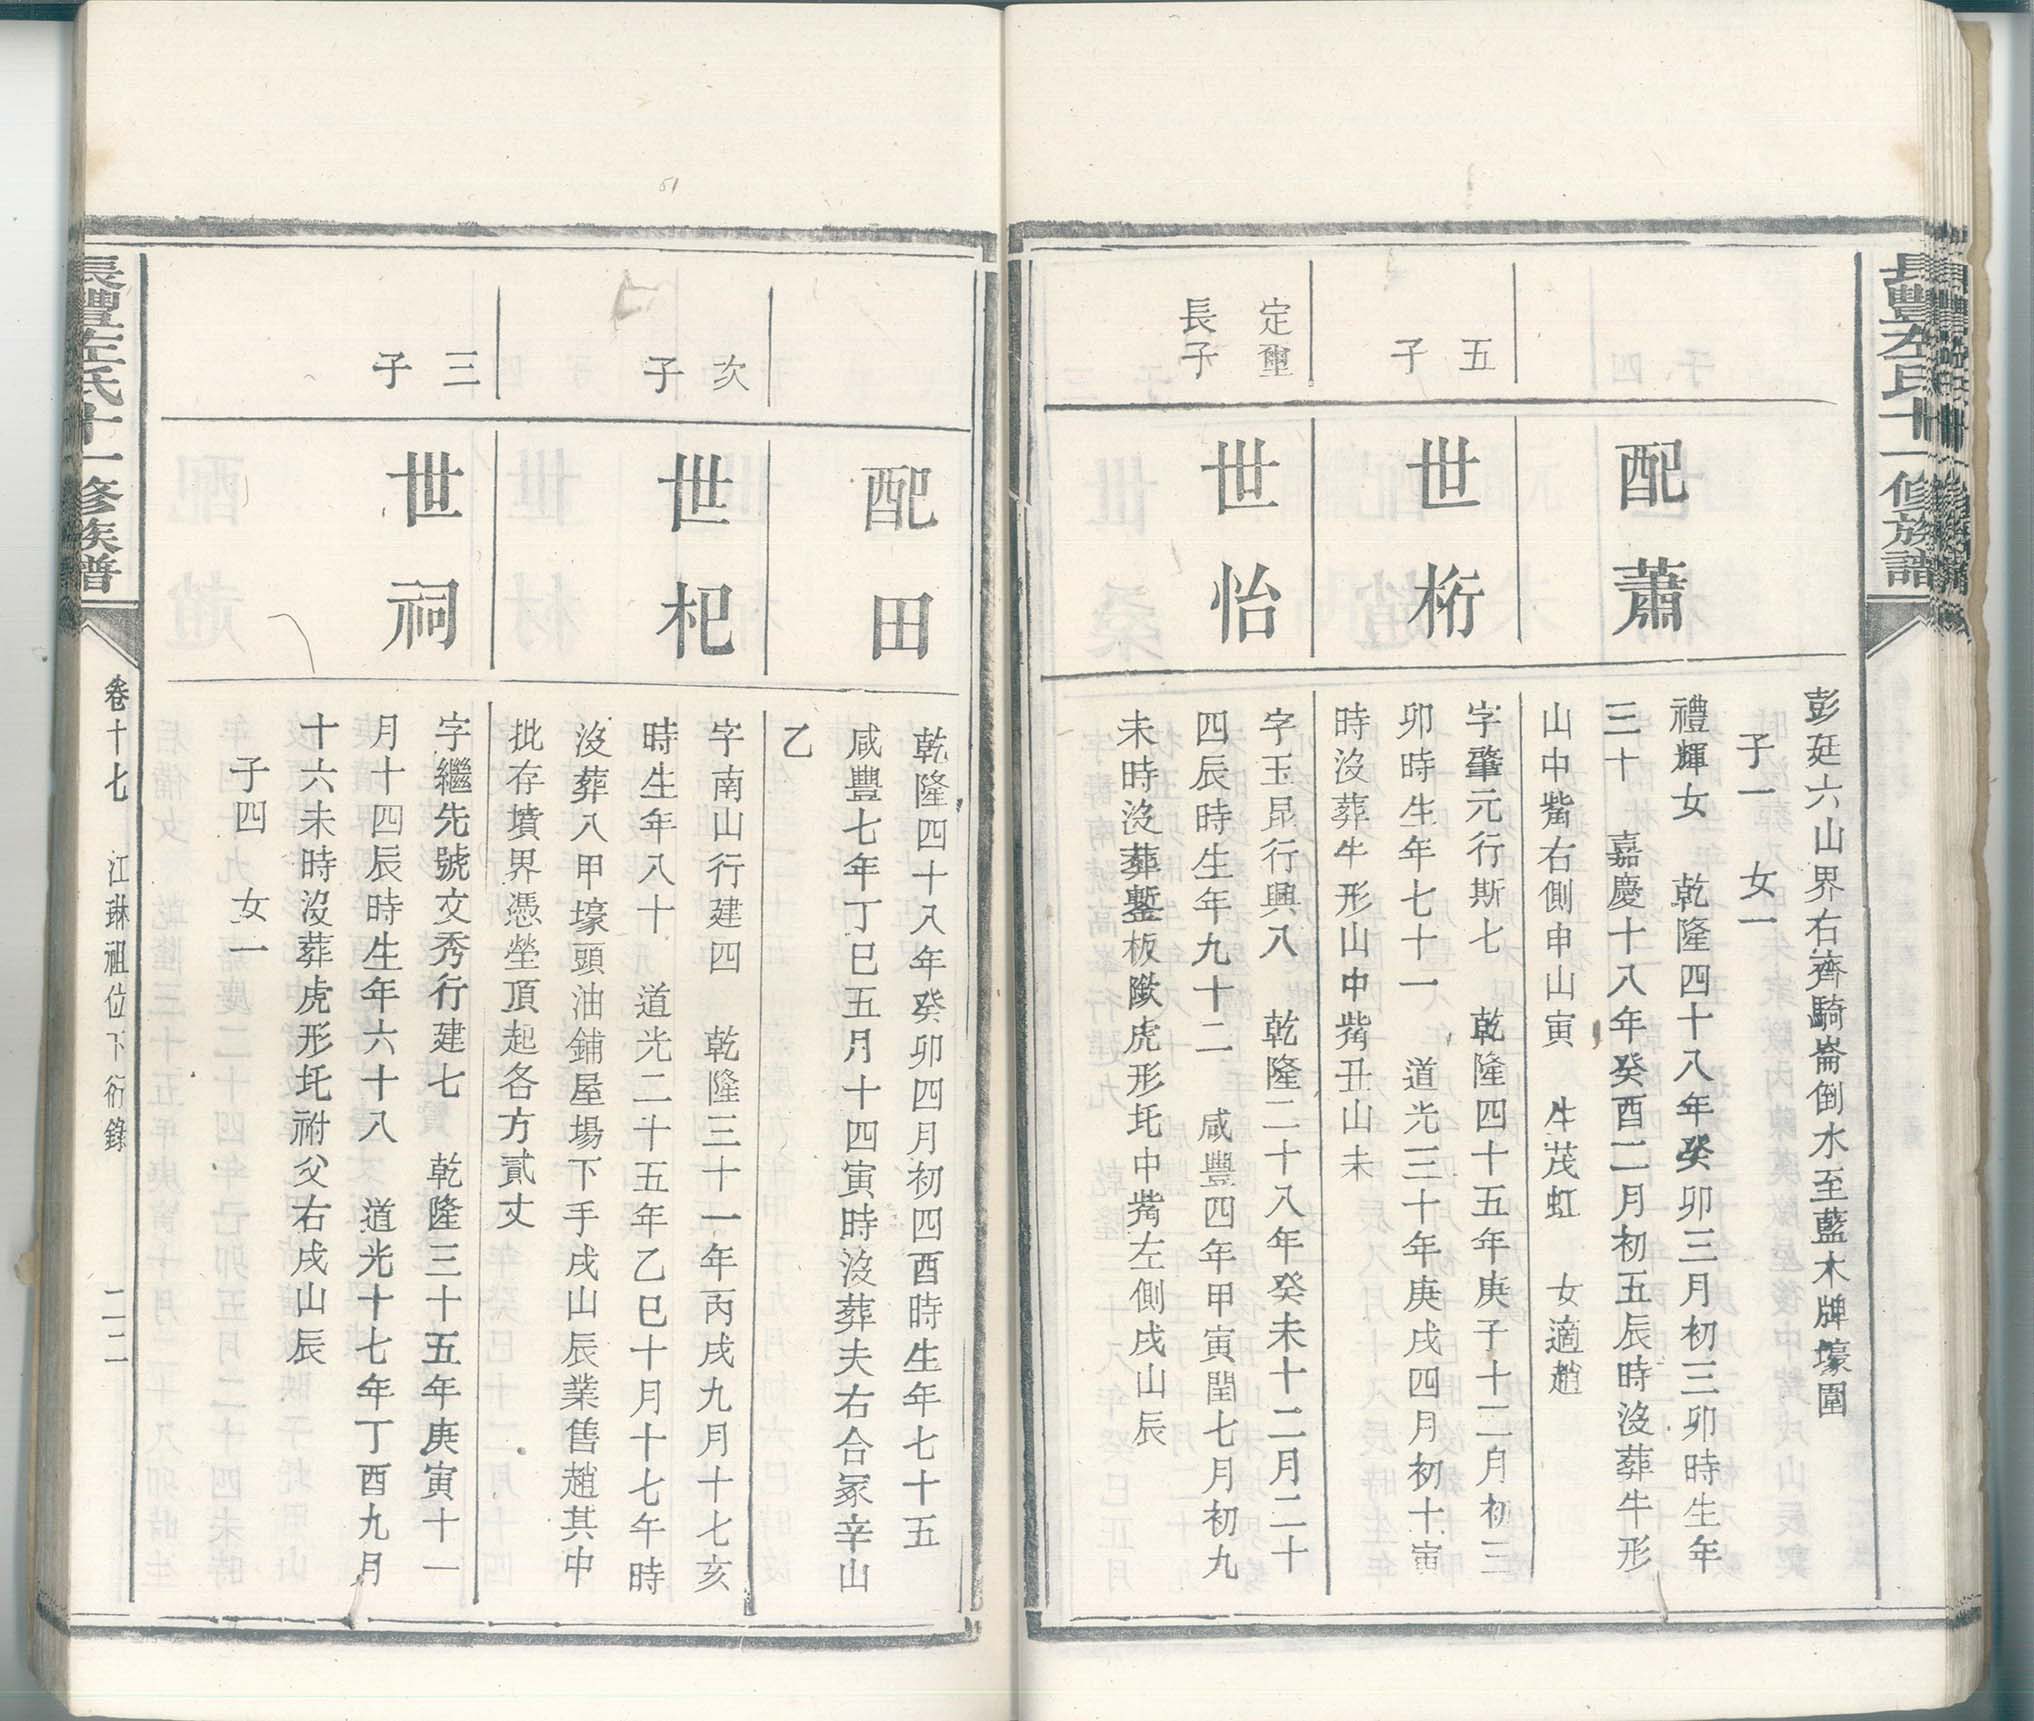 長豐左氏十一修族譜
彭廷六山界右濟騎崙倒水至藍木牌壕圍
子一 女一
配蕭
禮輝女 乾隆四十八年癸卯三月初三卯時生年
三十 嘉慶十八年癸酉二月初五辰時沒葬牛形
山中觜右側申山寅 生茂虹 女適趙
五
子
世桁
字肇元行斯七 乾隆四十五年庚子十二月初三
卯時生年七十一 道光三十年庚戌四月初十寅
時沒葬牛形山中觜丑山未
定璽
長子
世怡
字玉昂行興八 乾隆二十八年癸未十二月二十
四辰時生年九十二 咸豐四年甲寅閏七月初九
未時沒葬鏨板墩虎形坉中觜左側戌山辰
配田
乾隆四十八年癸卯四月初四酉時生年七十五
咸豐七年丁巳五月十四寅時沒葬夫右合冢辛山
乙
次
子
世杞
字南山行建四 乾隆三十一年丙戌九月十七亥
時生年八十 道光二十五年乙巳十月十七午時
沒葬八甲壕頭油鋪屋場下手戌山辰業售趙其中
批存墳界憑塋頂起各方貳丈
三
子
世祠
字繼先號文秀行建七 乾隆三十五年庚寅十一
月十四辰時生年六十八 道光十七年丁酉九月
十六未時沒葬虎形坉祔父右戌山辰
子四 女一
長豐左氏十一修族譜
卷十七 江琳祖位下衍錄 二二